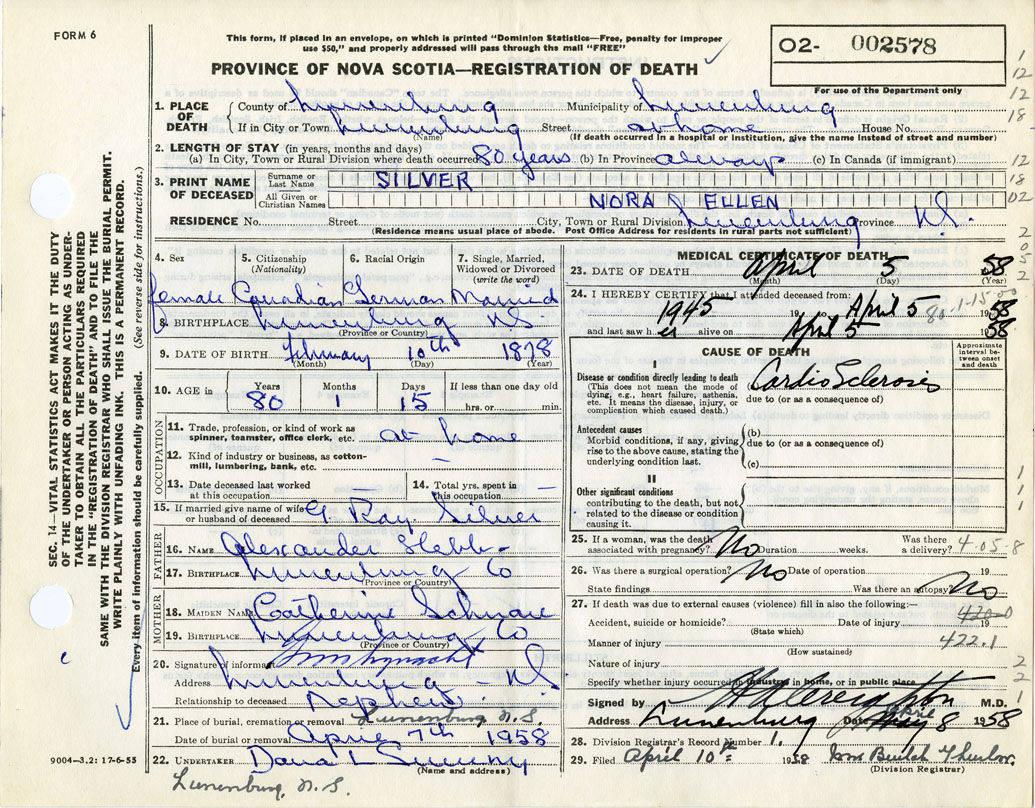 FORM 6
This form, if placed in an envelope, on which is printed "Dominion Statistics—Free, penalty for improper
use $50," and properly addressed will pass through the mail "FREE"
O2- 002578
PROVINCE OF NOVA SCOTIA—REGISTRATION OF DEATH
For use of the Department only
1. PLACE OF DEATH
County of Lunenburg Municipality of Lunenburg
If in City or Town Lunenburg Street at home House No.
(Name) (If death occurred in a hospital or institution, give the name instead of street and number)
2. LENGTH OF STAY (in years, months and days)
(a) In City, Town or Rural Division where death occurred 80 years (b) In Province always (c) In Canada (if immigrant)
3. PRINT NAME OF DECEASED
Surname or Last Name SILVER
All Given or Christian Names NORA ELLEN
RESIDENCE No. Street City, Town or Rural Division Lunenburg Province N.S.
(Residence means usual place of abode. Post Office Address for residents in rural parts not sufficient)
4. Sex 5. Citizenship (Nationality) 6. Racial Origin 7. Single, Married, Widowed or Divorced (write the word)
female Canadian German Married
8. BIRTHPLACE Lunenburg N.S.
(Province or Country)
9. DATE OF BIRTH February 10th 1878
(Month) (Day) (Year)
10. AGE in Years Months Days If less than one day old
80 1 15 hrs. or min.
OCCUPATION
11. Trade, profession, or kind of work as spinner, teamster, office clerk, etc. at home
12. Kind of industry or business, as cotton-mill, lumbering, bank, etc. —
13. Date deceased last worked at this occupation 14. Total yrs. spent in this occupation —
15. If married give name of wife or husband of deceased G Ray Silver
FATHER
16. NAME Alexander Hebb
17. BIRTHPLACE Lunenburg Co
(Province or Country)
MOTHER
18. MAIDEN NAME Catherine Schnare
19. BIRTHPLACE Lunenburg Co
(Province or Country)
20. Signature of informant
Address Lunenburg - N.S.
Relationship to deceased Nephew
21. Place of burial, cremation or removal Lunenburg N.S.
Date of burial or removal April 7th 1958
22. UNDERTAKER Dana L Sweeny
(Name and address)
9004—3.2: 17-6-55
Lunenburg, N.S.
MEDICAL CERTIFICATE OF DEATH
23. DATE OF DEATH April 5 1958
(Month) (Day) (Year)
24. I HEREBY CERTIFY that I attended deceased from:
1945 19 to April 5 1958
and last saw her alive on April 5 1958
CAUSE OF DEATH
Approximate interval between onset and death
I
Disease or condition directly leading to death
(This does not mean the mode of dying, e.g., heart failure, asthenia, etc. It means the disease, injury, or complication which caused death.)
(a) Cardio Sclerosis
due to (or as a consequence of)
Antecedent causes
Morbid conditions, if any, giving rise to the above cause, stating the underlying condition last.
(b)
due to (or as a consequence of)
(c)
II
Other significant conditions
contributing to the death, but not related to the disease or condition causing it.
25. If a woman, was the death associated with pregnancy? No Duration weeks. Was there a delivery?
4-05-8
26. Was there a surgical operation? No Date of operation 19
State findings Was there an autopsy No
27. If death was due to external causes (violence) fill in also the following:—
420.0
Accident, suicide or homicide? Date of injury 19
(State which)
422.1
Manner of injury
(How sustained)
Nature of injury
Specify whether injury occurred in industry, in home, or in public place
Signed by H A Creighton M.D.
Address Lunenburg Date April 8 1958
28. Division Registrar's Record Number 1.
29. Filed April 10th 1958
(Division Registrar)
SEC. 14—VITAL STATISTICS ACT MAKES IT THE DUTY
OF THE UNDERTAKER OR PERSON ACTING AS UNDER-
TAKER TO OBTAIN ALL THE PARTICULARS REQUIRED
IN THE "REGISTRATION OF DEATH" AND TO FILE THE
SAME WITH THE DIVISION REGISTRAR WHO SHALL ISSUE THE BURIAL PERMIT.
WRITE PLAINLY WITH UNFADING INK. THIS IS A PERMANENT RECORD.
Every item of information should be carefully supplied. (See reverse side for instructions.)